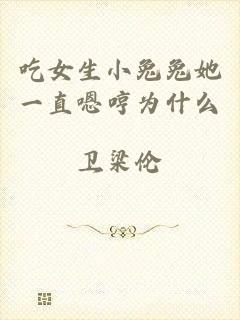 吃女生小兔兔她
一直嗯哼为什么
卫梁伦